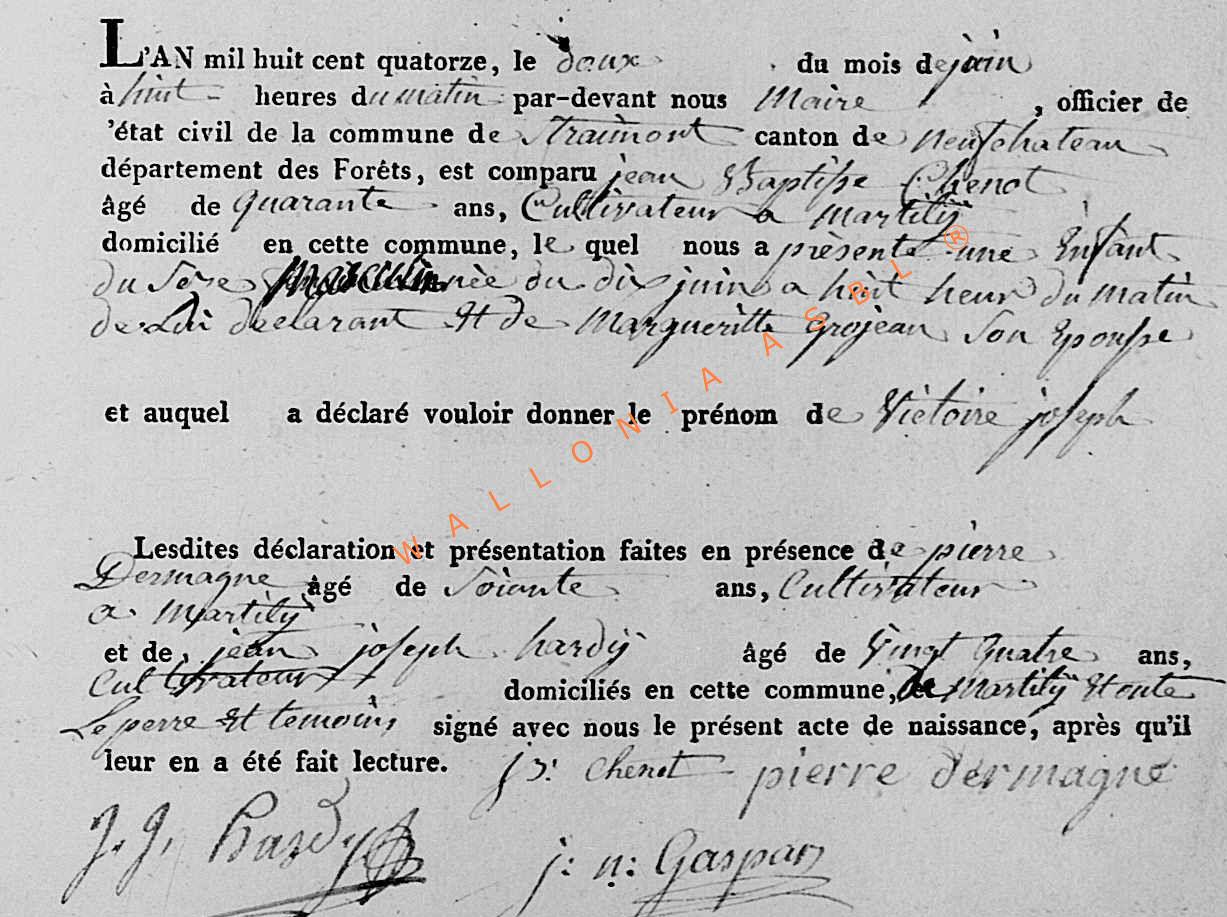 L'AN mil huit cent quatorze, le doux du mois de juin
à huit heures du matin par-devant nous Maire , officier de
'état civil de la commune de Straimont canton de neufchateau
département des Forêts, est comparu jean Baptiste Chenot
âgé de quarante ans, Cultivateur a martilÿ
domicilié en cette commune, le quel nous a présenté une Enfant
du Sexe née du dix juin a huit heur du matin
de Lui declarant Et de Margueritte Grojean Son Epousse
et auquel a déclaré vouloir donner le prénom de Victoire joseph
Lesdites déclaration et présentation faites en présence de pierre
Dermagne âgé de Soiante ans, Cultivateur
a Martilÿ
et de, jean joseph hardÿ âgé de Vingt Quatre ans,
Cultivateur domiciliés en cette commune, Martilÿ Et onte
Le perre Et temoins signé avec nous le présent acte de naissance, après qu'il
leur en a été fait lecture. chenot pierre dermagne
J. J. Hardy j: n: Gaspar
WALLONIA ASBL ®